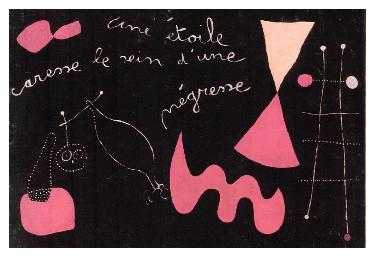 une étoile
caresse le sein d'une
négresse